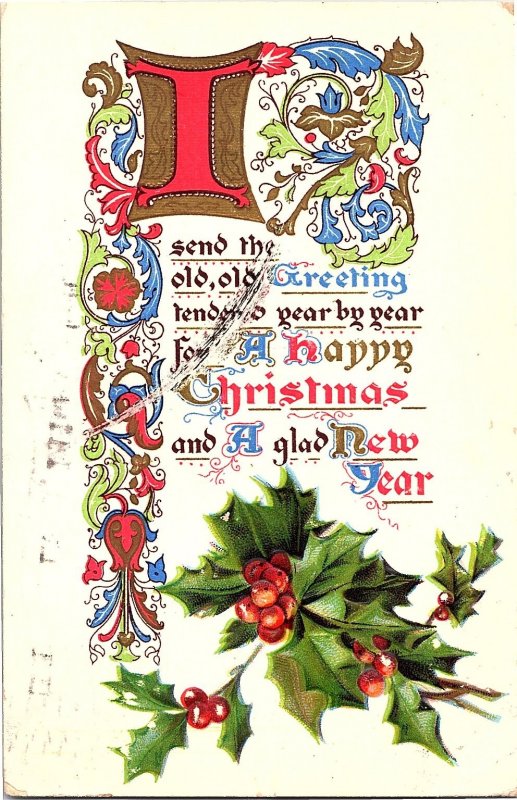 I
send the
old, old Greeting
tendered year by year
for A Happy
Christmas
and A glad New
Year